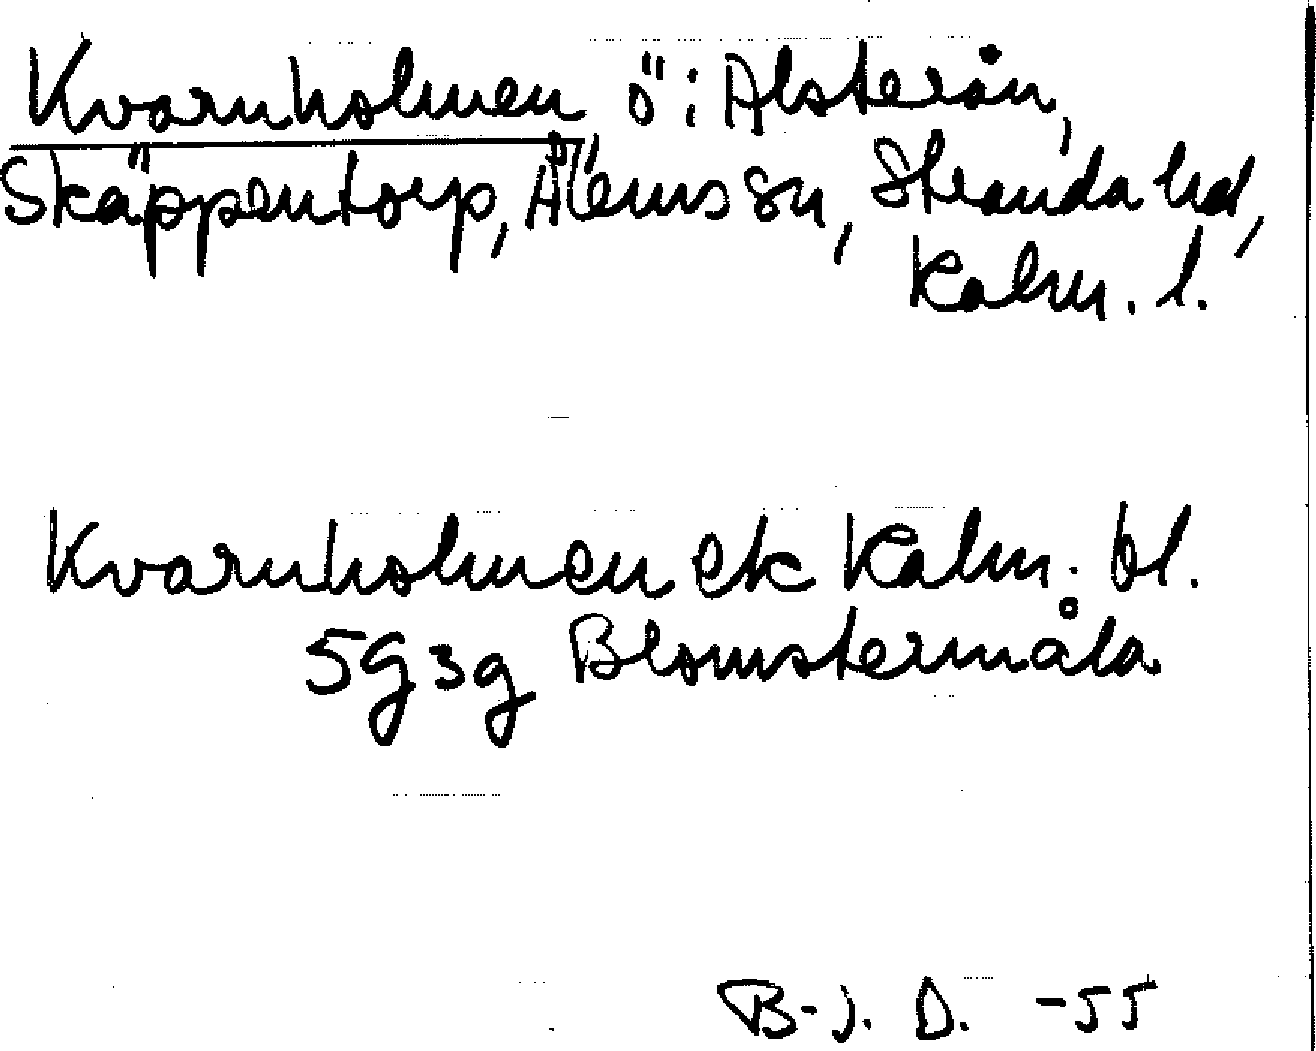 Kvarnholmen ö i Alsterån,
Skäppentorp, Ålems sn, Stranda hd,
Kalm. l.
Kvarnholmen ek Kalm. bl.
5G3g Blomstermåla
B-J. D. -55